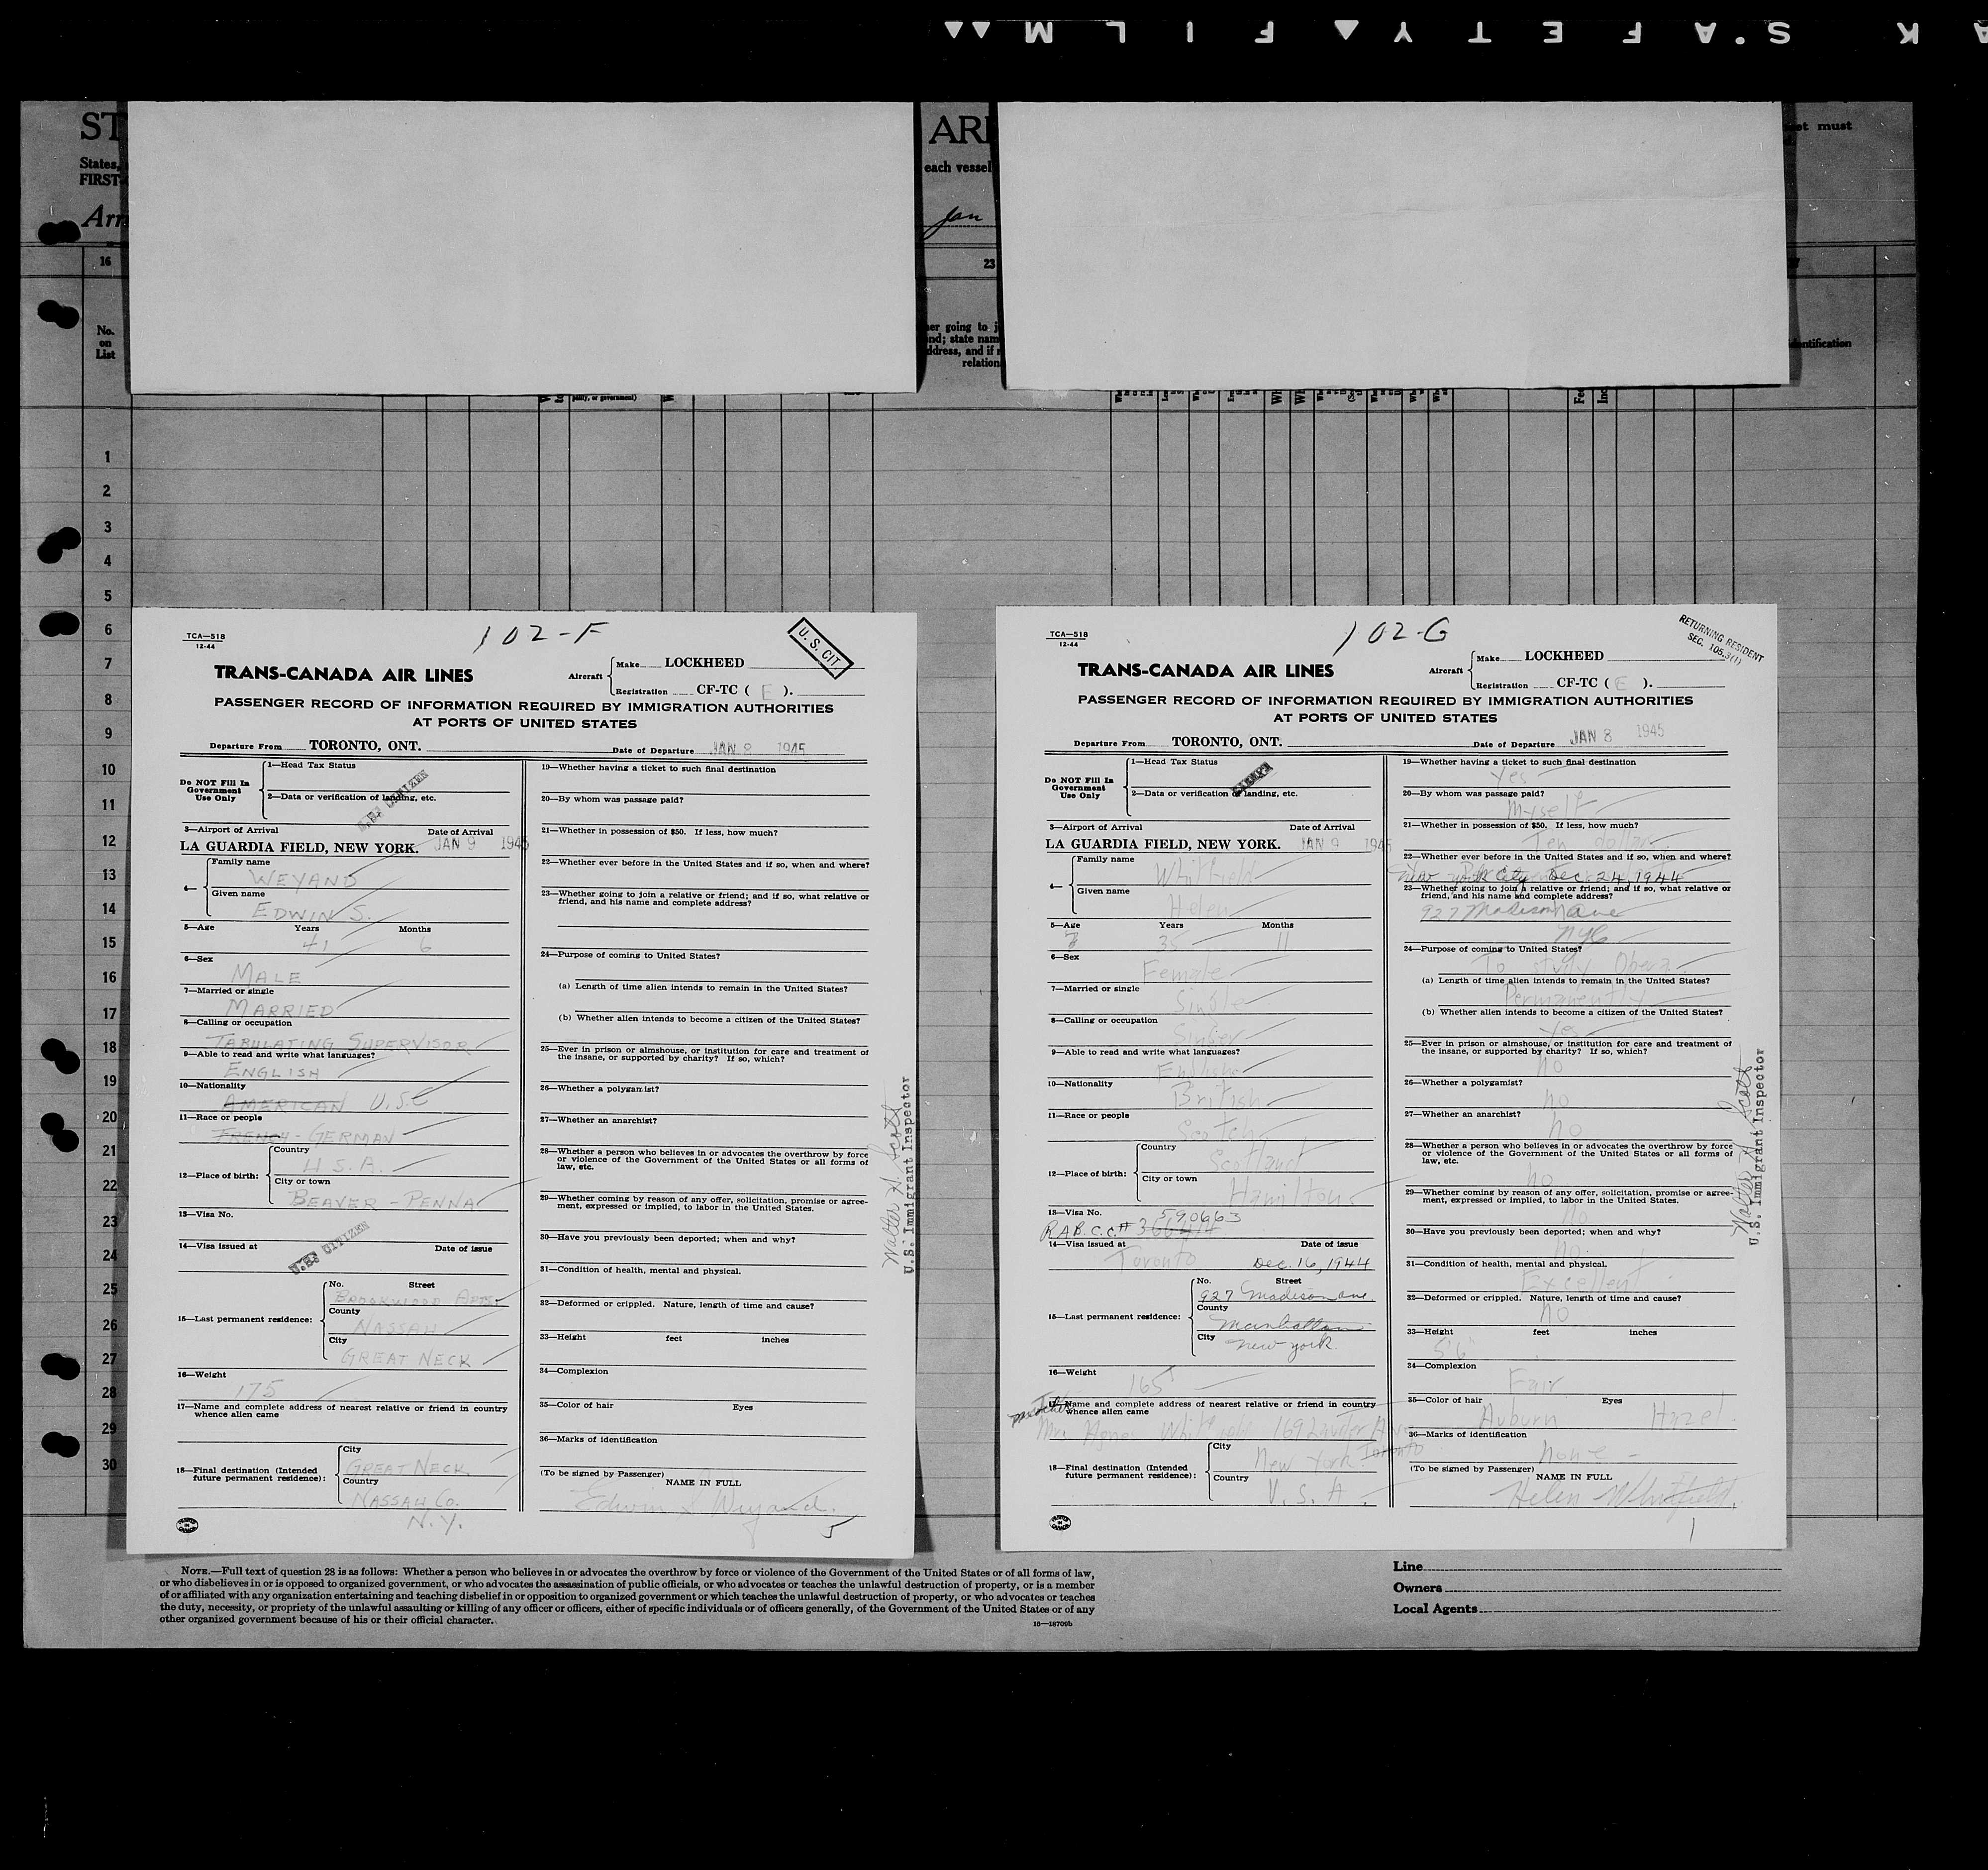 K S.A F E T Y ▲ F I L M ▲▲
ST
ARI
et must
States,
each vessel
FIRST-
Arr
Jan
16
23
No.
on
List
er going to j
nd; state nam
ddress, and if r
relation
dentification
pality, or government)
1
2
3
4
5
6
7
8
9
10
11
12
13
14
15
16
17
18
19
20
21
22
23
24
25
26
27
28
29
30
TCA—518
12-44
102-F
U. S. CIT.
TRANS-CANADA AIR LINES
Aircraft
Make LOCKHEED
Registration CF-TC ( E ).
PASSENGER RECORD OF INFORMATION REQUIRED BY IMMIGRATION AUTHORITIES
AT PORTS OF UNITED STATES
Departure From TORONTO, ONT. Date of Departure JAN 8 1945
Do NOT Fill In
Government
Use Only
1—Head Tax Status
2—Data or verification of landing, etc.
3—Airport of Arrival Date of Arrival
LA GUARDIA FIELD, NEW YORK. JAN 9 1945
4— Family name
WEYAND
Given name
EDWIN S.
5—Age Years Months
41 6
6—Sex
MALE
7—Married or single
MARRIED
8—Calling or occupation
TABULATING SUPERVISOR
9—Able to read and write what languages?
ENGLISH
10—Nationality
AMERICAN U.S.C
11—Race or people
FRENCH - GERMAN
12—Place of birth:
Country
U.S.A.
City or town
BEAVER - PENNA
13—Visa No.
U.S. CITIZEN
14—Visa issued at Date of issue
15—Last permanent residence:
No. Street
BROOKWOOD APTS
County
NASSAU
City
GREAT NECK
16—Weight
175
17—Name and complete address of nearest relative or friend in country
whence alien came
18—Final destination (Intended
future permanent residence):
City
GREAT NECK
Country
NASSAU CO.
N.Y.
19—Whether having a ticket to such final destination
20—By whom was passage paid?
21—Whether in possession of $50. If less, how much?
22—Whether ever before in the United States and if so, when and where?
23—Whether going to join a relative or friend; and if so, what relative or
friend, and his name and complete address?
24—Purpose of coming to United States?
(a) Length of time alien intends to remain in the United States?
(b) Whether alien intends to become a citizen of the United States?
25—Ever in prison or almshouse, or institution for care and treatment of
the insane, or supported by charity? If so, which?
26—Whether a polygamist?
27—Whether an anarchist?
28—Whether a person who believes in or advocates the overthrow by force
or violence of the Government of the United States or all forms of
law, etc.
29—Whether coming by reason of any offer, solicitation, promise or agree-
ment, expressed or implied, to labor in the United States.
30—Have you previously been deported; when and why?
31—Condition of health, mental and physical.
32—Deformed or crippled. Nature, length of time and cause?
33—Height feet inches
34—Complexion
35—Color of hair Eyes
36—Marks of identification
(To be signed by Passenger)
NAME IN FULL
Edwin S. Weyand.
5
Walter A. Scott
U.S. Immigrant Inspector
TCA—518
12-44
102-G
RETURNING RESIDENT
SEC. 105.3(1)
TRANS-CANADA AIR LINES
Aircraft
Make LOCKHEED
Registration CF-TC ( E ).
PASSENGER RECORD OF INFORMATION REQUIRED BY IMMIGRATION AUTHORITIES
AT PORTS OF UNITED STATES
Departure From TORONTO, ONT. Date of Departure JAN 8 1945
Do NOT Fill In
Government
Use Only
1—Head Tax Status
2—Data or verification of landing, etc.
3—Airport of Arrival Date of Arrival
LA GUARDIA FIELD, NEW YORK. JAN 9 1945
4— Family name
Whitfield
Given name
Helen
5—Age Years Months
35 11
6—Sex
Female
7—Married or single
Single
8—Calling or occupation
Singer
9—Able to read and write what languages?
English
10—Nationality
British
11—Race or people
Scotch
12—Place of birth:
Country
Scotland
City or town
Hamilton
13—Visa No. 590663
R.A.B.C.C.#
14—Visa issued at Date of issue
Toronto Dec. 16, 1944
15—Last permanent residence:
No. Street
927 Madison ave.
County
Manhattan
City
New York.
16—Weight
165
17—Name and complete address of nearest relative or friend in country
whence alien came
Mrs. Agnes Whitfield 169
Toronto
18—Final destination (Intended
future permanent residence):
City
New York
Country
U.S.A.
19—Whether having a ticket to such final destination
Yes
20—By whom was passage paid?
Myself
21—Whether in possession of $50. If less, how much?
Ten dollars
22—Whether ever before in the United States and if so, when and where?
New York City Dec. 24, 1944
23—Whether going to join a relative or friend; and if so, what relative or
friend, and his name and complete address?
927 Madison Ave
NYC
24—Purpose of coming to United States?
To study Opera
(a) Length of time alien intends to remain in the United States?
Permanently
(b) Whether alien intends to become a citizen of the United States?
Yes
25—Ever in prison or almshouse, or institution for care and treatment of
the insane, or supported by charity? If so, which?
no
26—Whether a polygamist?
no
27—Whether an anarchist?
no
28—Whether a person who believes in or advocates the overthrow by force
or violence of the Government of the United States or all forms of
law, etc.
no
29—Whether coming by reason of any offer, solicitation, promise or agree-
ment, expressed or implied, to labor in the United States.
no
30—Have you previously been deported; when and why?
no
31—Condition of health, mental and physical.
Excellent
32—Deformed or crippled. Nature, length of time and cause?
no
33—Height feet inches
5'6"
34—Complexion
Fair
35—Color of hair Eyes
Auburn Hazel
36—Marks of identification
none
(To be signed by Passenger)
NAME IN FULL
Helen Whitfield.
1
Walter A. Scott
U.S. Immigrant Inspector
NOTE.—Full text of question 28 is as follows: Whether a person who believes in or advocates the overthrow by force or violence of the Government of the United States or of all forms of law,
or who disbelieves in or is opposed to organized government, or who advocates the assassination of public officials, or who advocates or teaches the unlawful destruction of property, or is a member
of or affiliated with any organization entertaining and teaching disbelief in or opposition to organized government or which teaches the unlawful destruction of property, or who advocates or teaches
the duty, necessity, or propriety of the unlawful assaulting or killing of any officer or officers, either of specific individuals or of officers generally, of the Government of the United States or of any
other organized government because of his or their official character.
16—18709b
Line
Owners
Local Agents